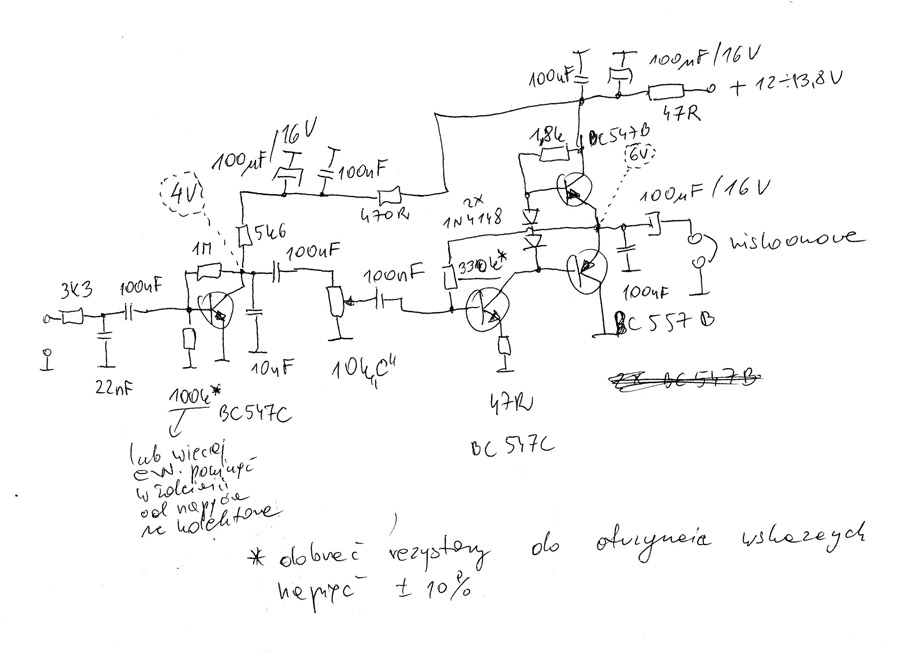 100µF/16V
100nF
+ 12÷13,8V
47R
1,8k
BC547B
6V
100µF/16V
100µF/16V
100nF
4V
470R
2x
1N4148
niskoomowe
5k6
1M
100nF
100nF
330k*
3k3
100nF
100nF
BC557B
22nF
10nF
10k "C"
2x BC547B
100k*
BC547C
47R
BC547C
lub więcej
ew. pominąć
w zależności
od napięcia
na kolektorze
* dobrać rezystory do otrzymania wskazanych
napięć ± 10%